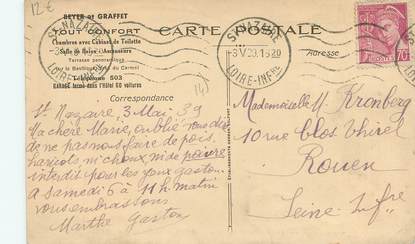 12€
BEYER et GRAFFET
TOUT CONFORT
Chambres avec Cabinet de Toilette
Salle de Bains - Ascenseurs
Terrasse panoramique
sur la Basilique
Téléphone 503
GARAGE fermé dans l'hôtel 60 voitures
CARTE POSTALE
Correspondance
Adresse
ST NAZAIRE
LOIRE-INFRE
ST NAZAIRE
-3 V 39. 1520
LOIRE-INFRE
POSTES
70c
St Nazaire 3 Mai 39
Ma chère Marie, oublié vous dire
de ne pas nous faire de pois,
haricots, ni choux, ni de poivre
interdit pour les yeux gaston.
a samedi 6 a 11 h. matin
vous embrassons
Marthe Gaston
Mademoiselle M. Kronberg
10 rue Clos Thirel
Rouen
Seine Infre